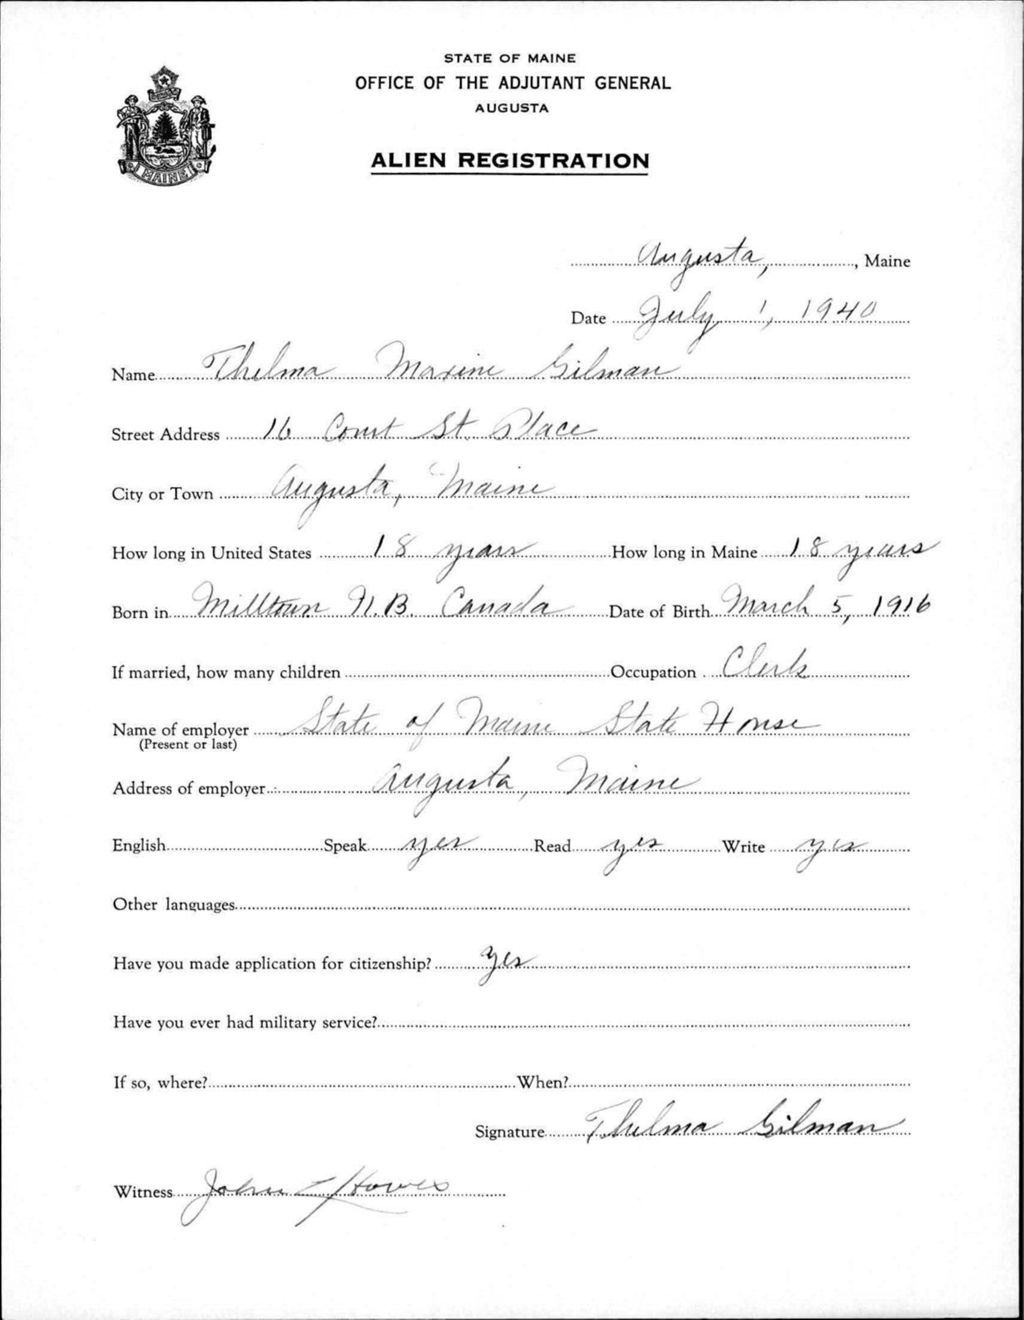 STATE OF MAINE
OFFICE OF THE ADJUTANT GENERAL
AUGUSTA
ALIEN REGISTRATION
MAINE
Augusta, , Maine
Date July 1, 1940
Name Thelma Maxine Gilman
Street Address 16 Court St. Place
City or Town Augusta, Maine
How long in United States 18 years How long in Maine 18 years
Born in Milltown N.B. Canada Date of Birth March 5, 1916
If married, how many children Occupation Clerk
Name of employer State of Maine State House
(Present or last)
Address of employer Augusta, Maine
English Speak yes Read yes Write yes
Other languages
Have you made application for citizenship? Yes
Have you ever had military service?
If so, where? When?
Signature Thelma Gilman
Witness John Howes